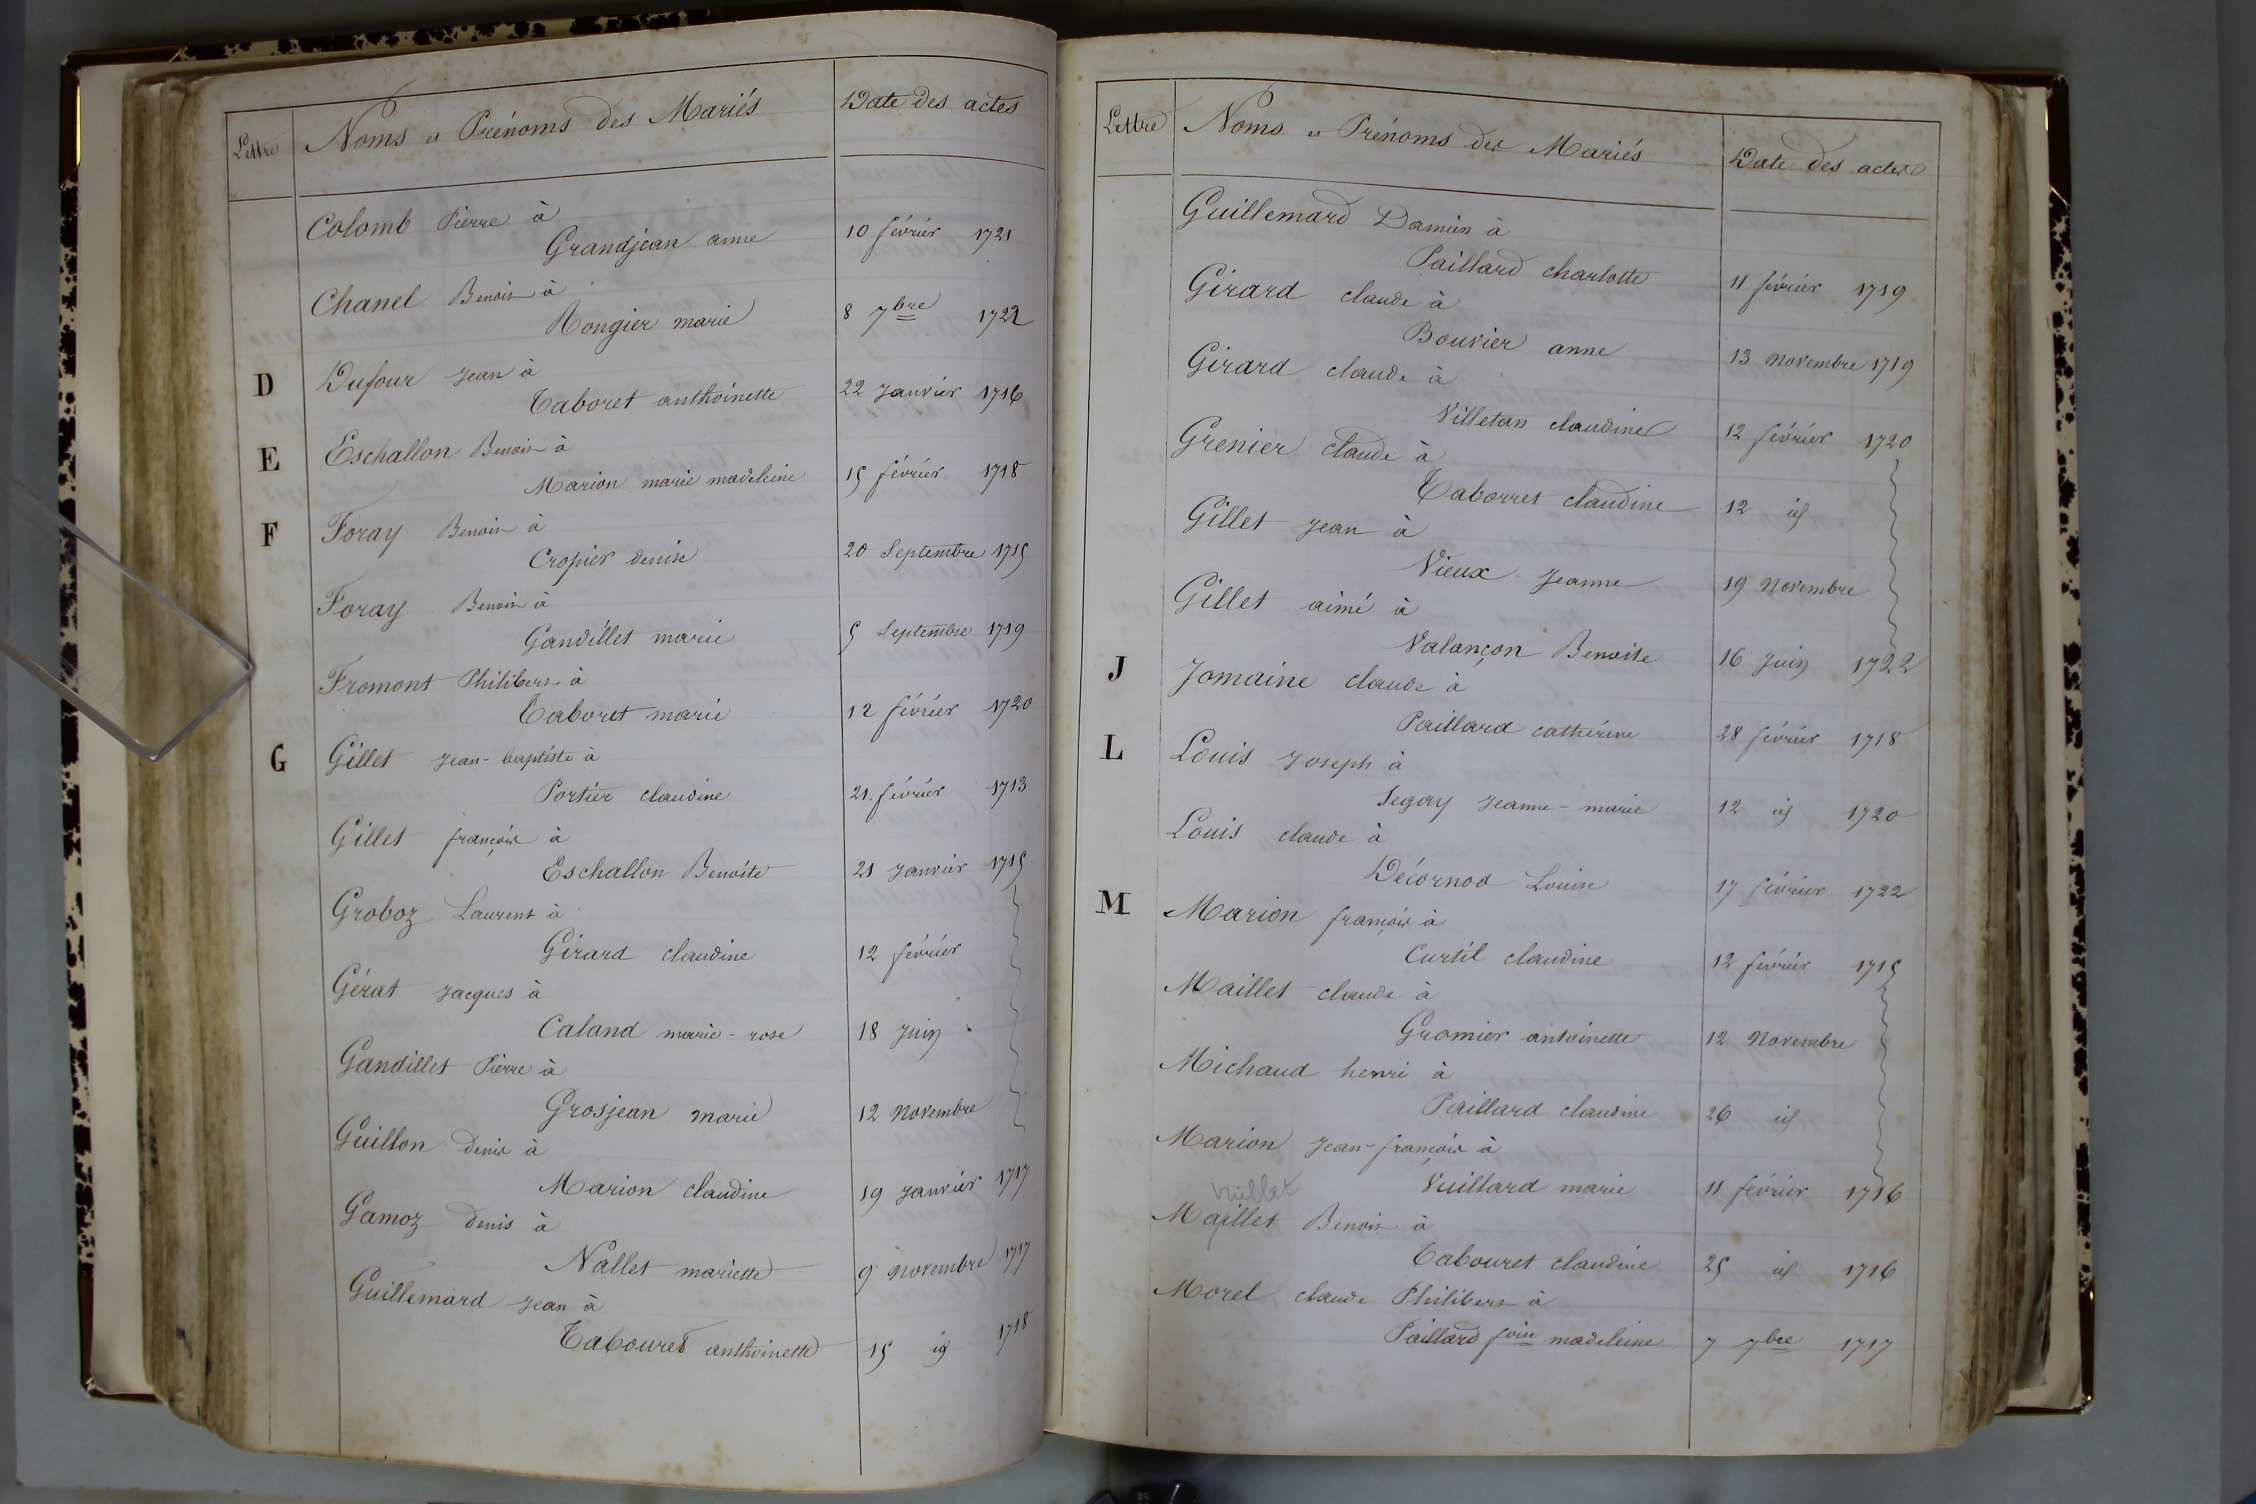 Lettre Noms et Prénoms des Mariés Date des actes
Colomb Pierre à
Grandjean anne 10 février 1721
Chanel Benoit à
Rongier marie 8 7bre 1722
D Dufour Jean à
Taboret anthoinette 22 Janvier 1716
E Eschallon Benoit à
Marion marie madeleine 15 février 1718
F Foray Benoit à
Cropier denise 20 Septembre 1715
Foray Benoit à
Gandillet marie 5 Septembre 1719
Fromont Philibert à
Taboret marie 12 février 1720
G Gillet Jean-baptiste à
Portier claudine 21 février 1713
Gillet françois à
Eschallon Benoite 21 Janvier 1715
Groboz Laurent à
Girard claudine 12 février
Gérat Jacques à
Caland marie-rose 18 Juin
Gandillet Pierre à
Grosjean marie 12 Novembre
Guillon denis à
Marion claudine 19 Janvier 1717
Gamoz denis à
Nallet mariette 9 novembre 1717
Guillemard Jean à
Tabouret anthoinette 15 id 1718
Lettre Noms et Prénoms des Mariés Date des actes
Guillemard Damien à
Paillard charlotte 11 février 1719
Girard claude à
Bouvier anne 13 Novembre 1719
Girard claude à
Villetan claudine 12 février 1720
Grenier claude à
Taborret claudine 12 id
Gillet Jean à
Vieux Jeanne 19 Novembre
Gillet aimé à
Valançon Benoite 16 Juin 1722
J Jomaine claude à
Paillard catherine 28 février 1718
L Louis Joseph à
Segay Jeanne-marie 12 id 1720
Louis claude à
Décornod Louise 17 février 1722
M Marion françois à
Curtil claudine 12 février 1715
Maillet claude à
Gromier antoinette 12 Novembre
Michaud henri à
Paillard claudine 26 id
Marion Jean-françois à
Vuillard marie 11 février 1716
Nullet
Maillet Benoit à
Tabouret claudine 25 id 1716
Morel claude Philibert à
Paillard foise madeleine 7 7bre 1717